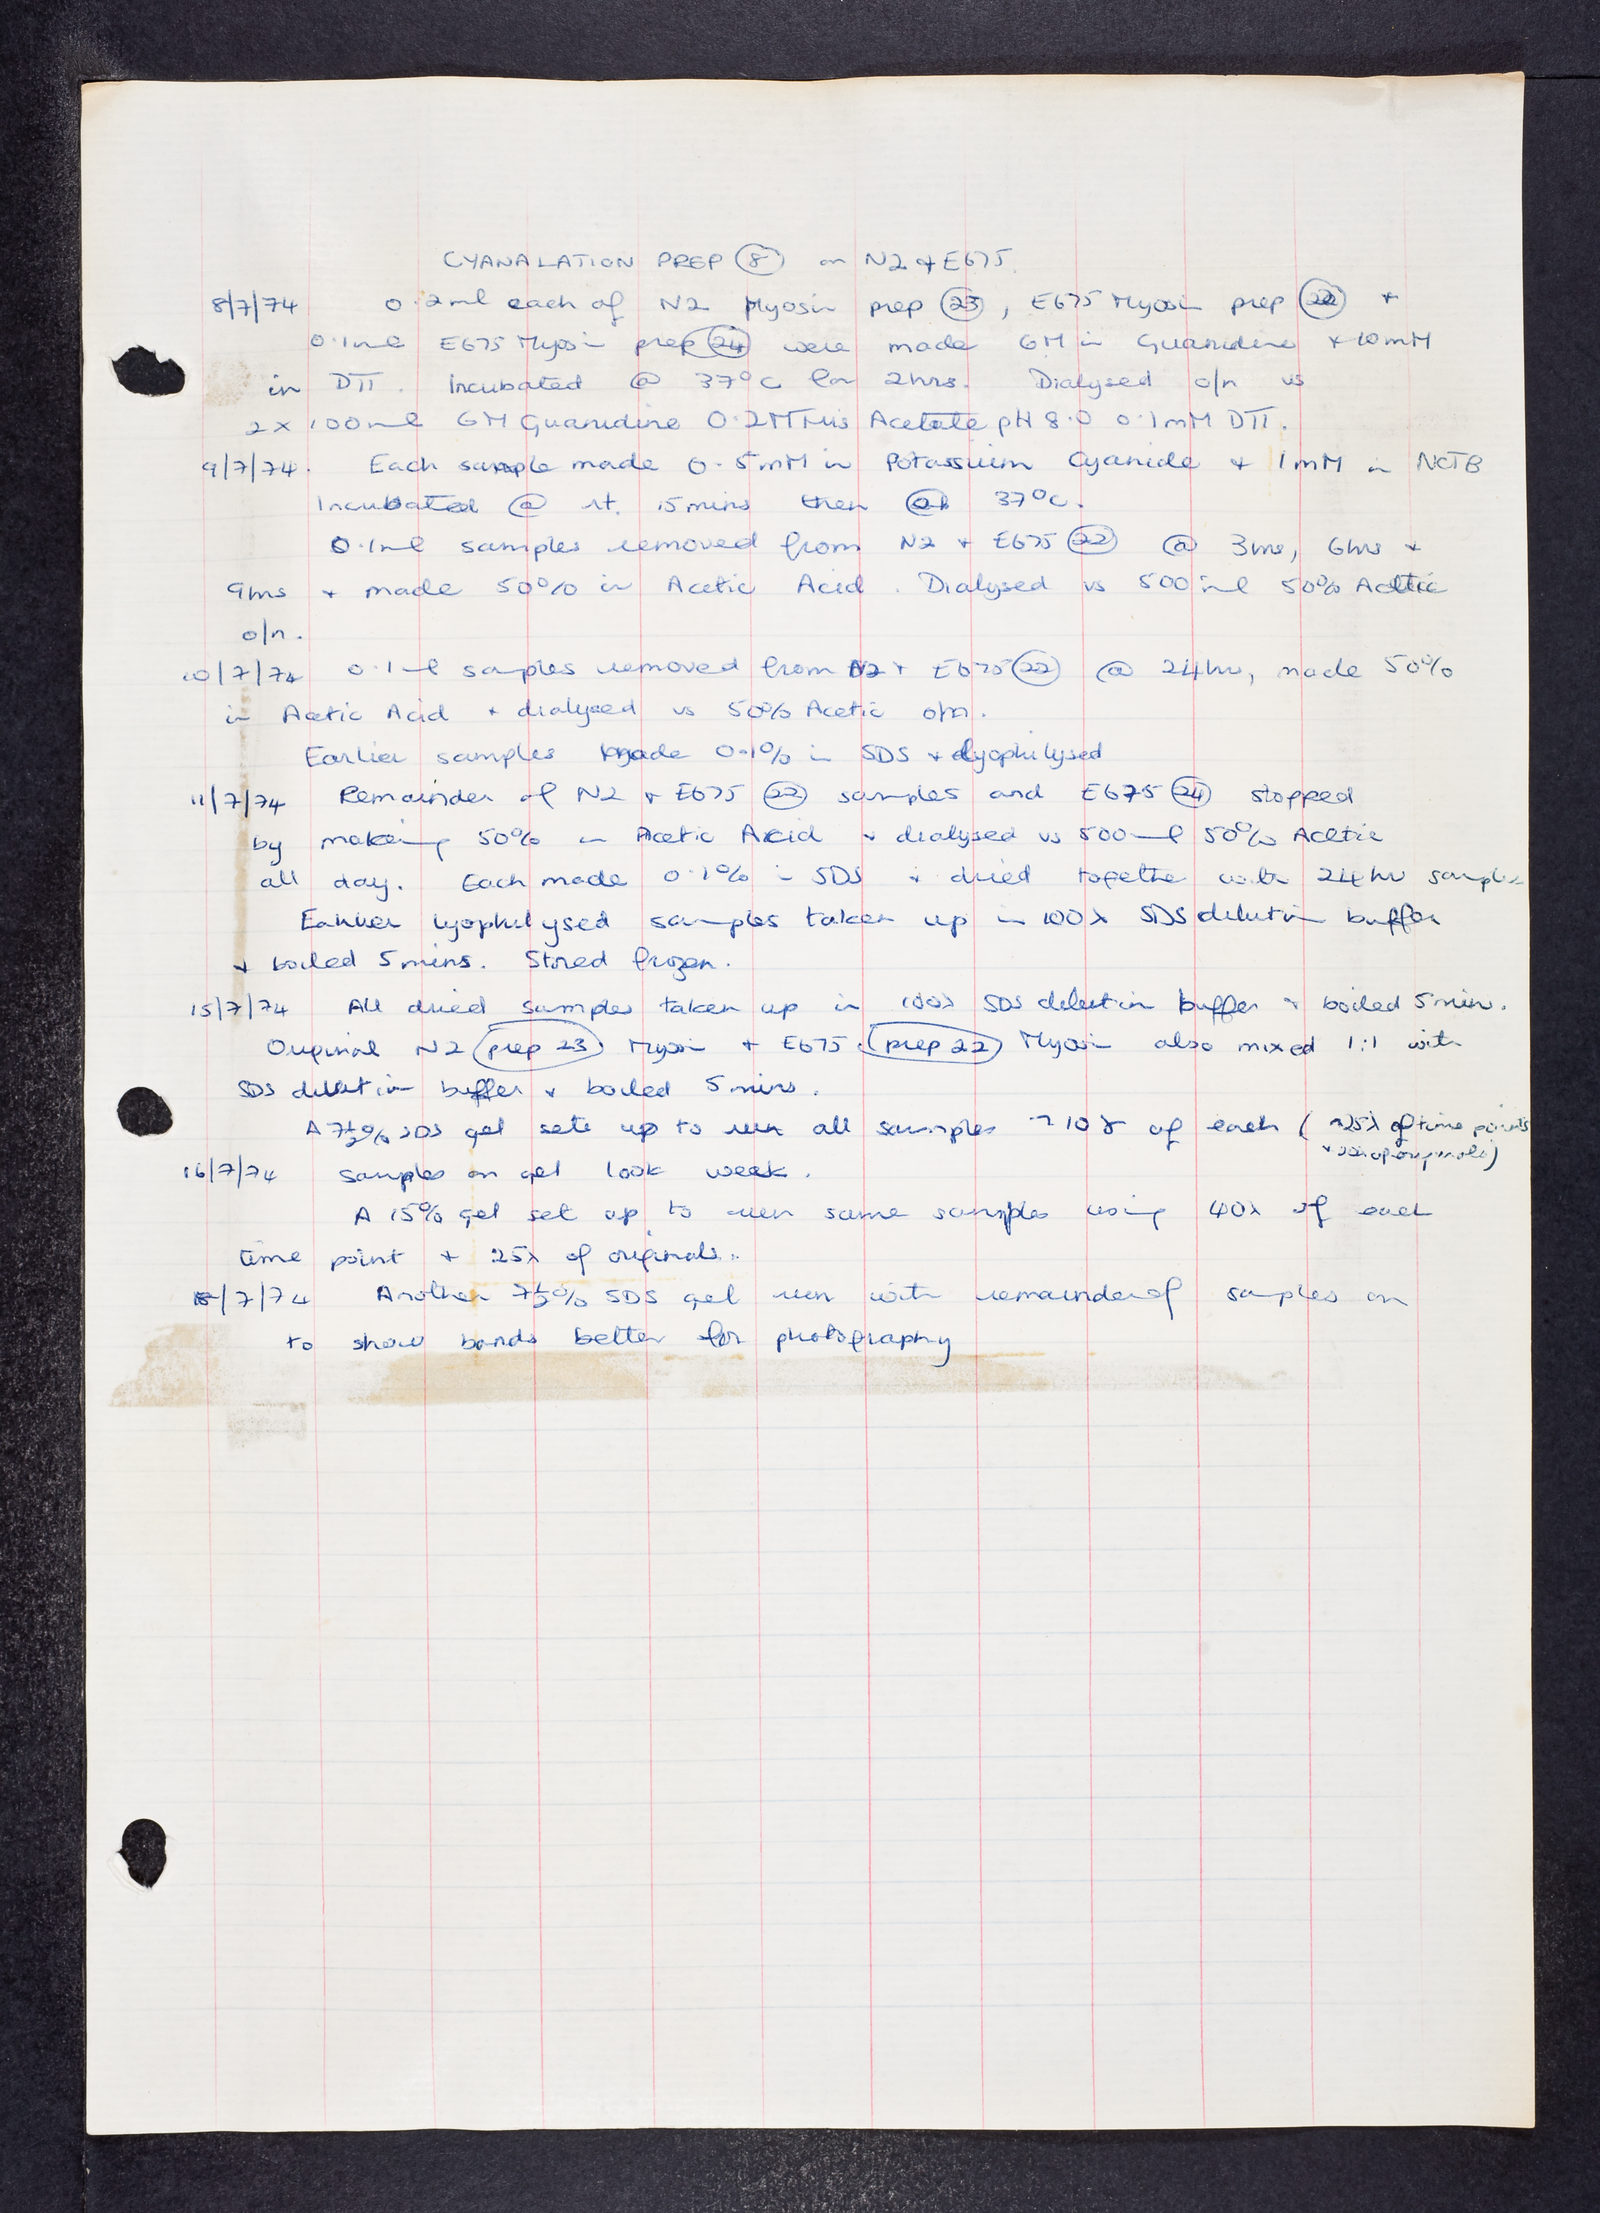 CYANALATION PREP (8) on N2 & E675.
8/7/74 0.2ml each of N2 Myosin prep (23), E675 Myosin prep (22) +
0.1ml E675 Myosin prep (24) were made 6M in Guanidine + 10mM
in DTT. Incubated @ 37°C for 2hrs. Dialysed o/n vs
2 x 100ml 6M Guanidine 0.2M Tris Acetate pH 8.0 0.1mM DTT.
9/7/74. Each sample made 0.5mM in Potassium Cyanide + 1mM in NCTB
Incubated @ rt. 15mins then @ 37°C.
0.1ml samples removed from N2 + E675 (22) @ 3hrs, 6hrs +
9hrs + made 50% in Acetic Acid. Dialysed vs 500ml 50% Acetic
o/n.
10/7/74 0.1ml samples removed from N2 + E675 (22) @ 24hr, made 50%
in Acetic Acid + dialysed vs 50% Acetic o/n.
Earlier samples made 0.1% in SDS + lyophilysed
11/7/74 Remainder of N2 + E675 (22) samples and E675 (24) stopped
by making 50% in Acetic Acid + dialysed vs 500ml 50% Acetic
all day. Each made 0.1% in SDS + dried together with 24hr samples
Earlier lyophilysed samples taken up in 100λ SDS dilution buffer
+ boiled 5mins. Stored frozen.
15/7/74 All dried samples taken up in 100λ SDS dilution buffer + boiled 5mins.
Original N2 (prep 23) Myosin + E675 (prep 22) Myosin also mixed 1:1 with
SDS dilution buffer + boiled 5mins.
A 7½% SDS gel sets up to run all samples ~10γ of each (~25λ of time points
of originals)
16/7/74 Samples on gel look weak.
A 15% gel set up to run same samples using 40λ of each
time point + 25λ of originals.
/7/74 Another 7½% SDS gel run with remainder of samples on
to show bands better for photography